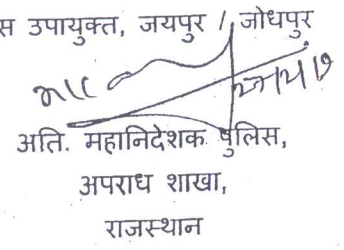 स उपायुक्त, जयपुर / जोधपुर
अति. महानिदेशक पुलिस,
अपराध शाखा,
राजस्थान